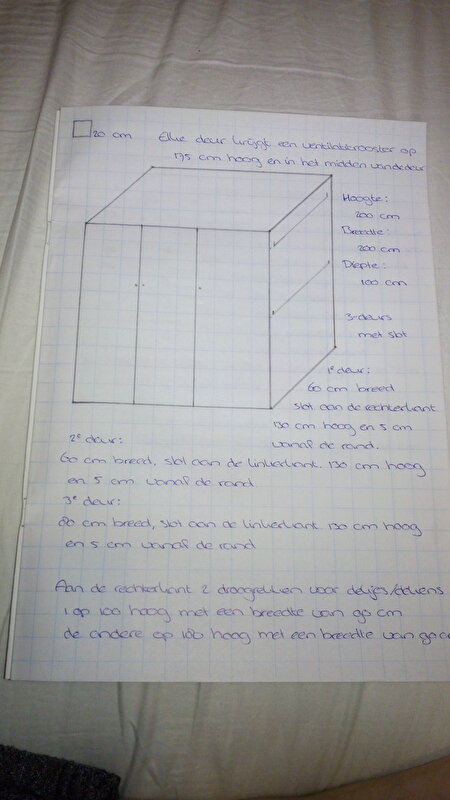 20 cm Elke deur krijgt een ventilatierooster op
175 cm hoog en in het midden van de deur
Hoogte:
200 cm
Breedte:
200 cm
Diepte:
100 cm
3-deurs
met slot
1e deur:
60 cm breed
slot aan de rechterkant
130 cm hoog en 5 cm
vanaf de rand.
2e deur:
60 cm breed, slot aan de linkerkant. 130 cm hoog
en 5 cm vanaf de rand
3e deur:
80 cm breed, slot aan de linkerkant 130 cm hoog
en 5 cm vanaf de rand
Aan de rechterkant 2 droogrekken voor dekjes/dekens
1 op 100 hoog met een breedte van 90 cm
de andere op 180 hoog met een breedte van 90 c